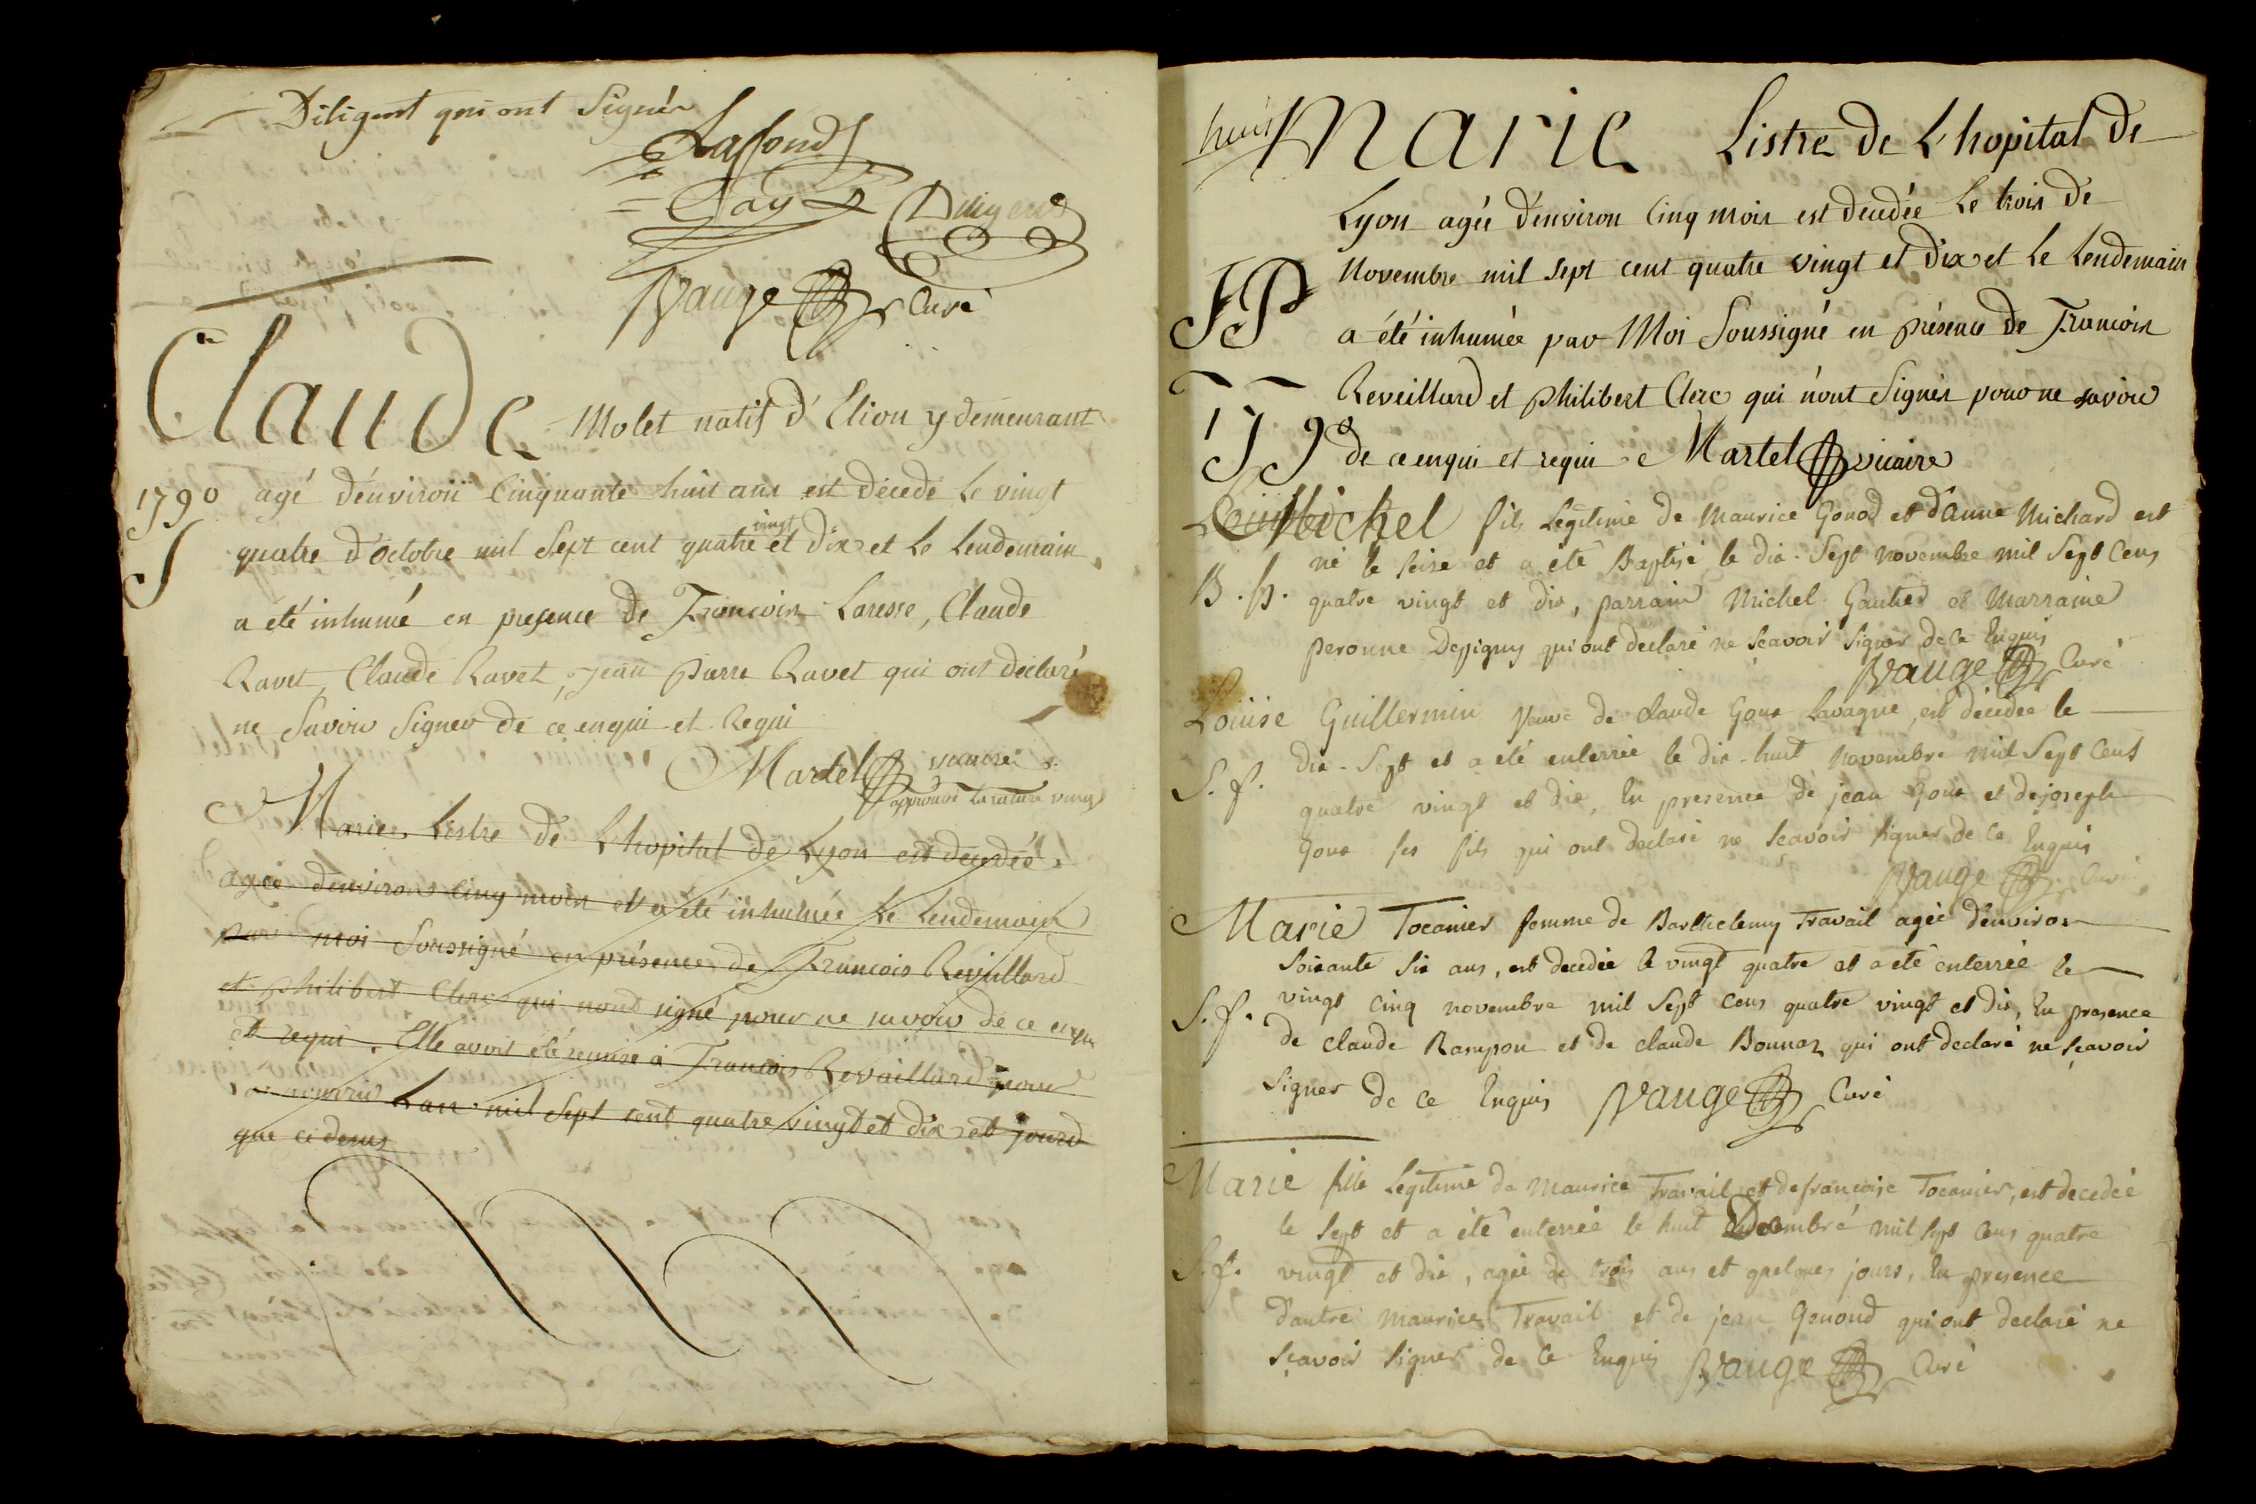 Diligent qui ont Signés
Laffond
Gay Diligent
Vauge Curé
Claude Molet natif d'Elion y demeurant
1790 agé d'environ Cinquante huit ans est décédé le vingt
S quatre d'octobre mil Sept cent quatre vingt et dix et le lendemain
a été inhumé en presence de Francois Laresse, Claude
Ravet, Claude Ravet, Jean Pierre Ravet qui ont déclaré
ne Savoir Signer de ce enquis et Requi
Martel vicaire
approuvé la rature vingt
Marie Listre de L'hopital de Lyon est decedée
agée d'environ cinq mois et a été inhumée Le Lendemain
par moi Soussigné en présence de Francois Reveillard
et philibert Clerc qui n'ont signé pour ne savoir de ce enquis
et requi. Elle avoit été remise à Francois Revaillard pour
la nourrir Lan mil Sept cent quatre vingt et dix et jourd
que ci desus
huit Marie Listre de L'hopital de
Lyon agée d'environ Cinq mois est decedée Le trois de
Novembre mil sept cent quatre vingt et dix et Le Lendemain
a été inhumée par Moi Soussigné en présence de Francois
Reveillard et philibert Clerc qui n'ont Signés pour ne savoir
1790 de ce enquis et requi Martel vicaire
Michel fils Legitime de Maurice Gonod et d'anne Michard est
né le seise et a été Baptisé le dix-Sept novembre mil Sept Cens
quatre vingt et dix, parrain Michel Gautier et Marraine
peronne Depigny qui ont declaré ne sçavoir signer de ce Enquis
Vauge Curé
Louise Guillermin veuve de claude Goux Lavagne, est décédée le
S. f. dix-Sept et a été enterrée le dix-huit Novembre mil Sept Cens
quatre vingt et dix, En presence de jean Goux et de joseph
Goux ses fils qui ont declaré ne sçavoir signer de ce Enquis
Vauge Curé
Marie Tocanier femme de Barthelemy Travail agée d'environ
Soixante Six ans, est decedée le vingt quatre et a été enterrée le
S. f. vingt Cinq novembre mil Sept Cens quatre vingt et dix, En presence
de claude Rampon et de claude Bonnaz qui ont declaré ne sçavoir
signer de ce Enquis Vauge Curé
Marie fille Legitime de Maurice Travail et de françoise Tocanier, est decedée
le Sept et a été enterrée le huit Decembre mil Sept Cens quatre
S. f. vingt et dix, agée de trois ans et quelques jours, En presence
d'autre Maurice Travail et de jean Genoud qui ont declaré ne
sçavoir signer de ce Enquis Vauge Curé